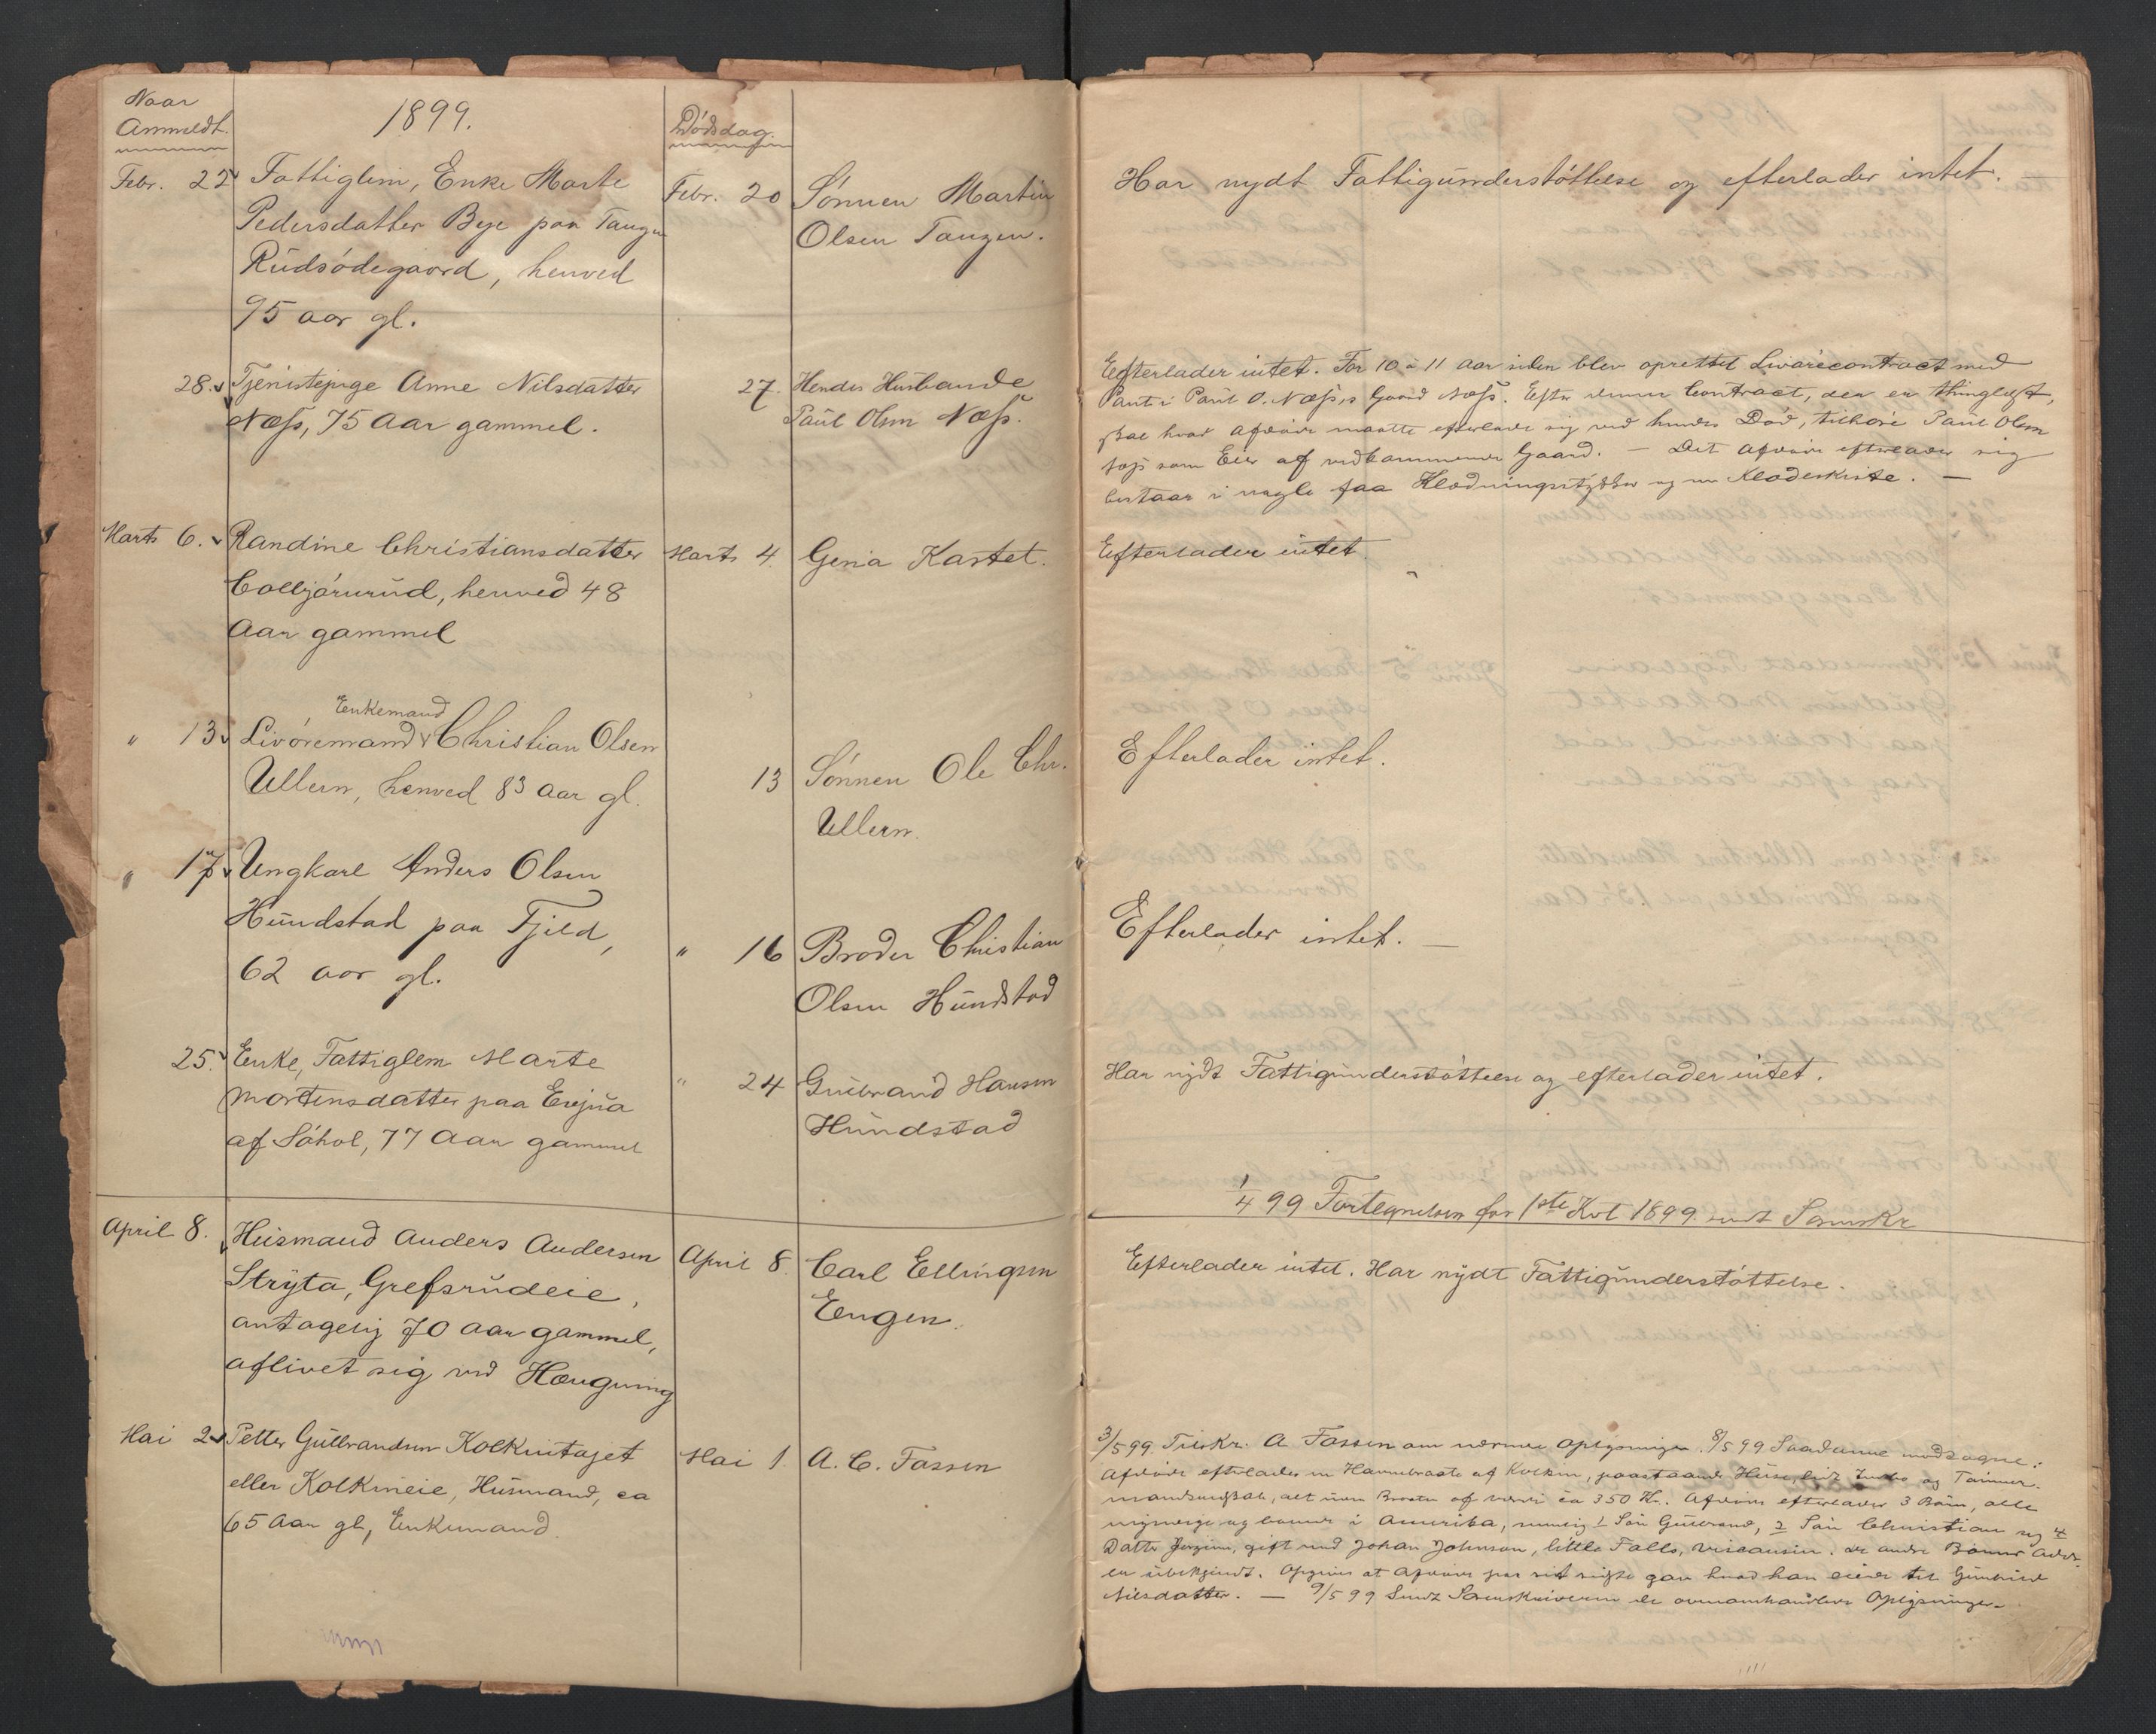 Naar
Anmeldt.
1899.
Dödsdag.
Febr. 22 Fattiglem, Enke Marte
Pedersdatter Bye paa Tangen
Rudsödegaard, henved
95 aar gl.
Febr. 20
Sönnen Martin
Olsen Tangen.
Har nydt Fattigunderstöttelse og efterlader intet. —
28. Tjenistepige Anne Nilsdatter
Næss, 75 Aar gammel.
27.
Hendes Husbonde
Paul Olsen Næss.
Efterlader intet. For 10 à 11 Aar siden blev oprettet Livörecontract med
Pant i Paul O. Næss,s Gaard Næss. Efter denne Contract, der er thinglæst,
skal hvad Afdöde maatte efterlade sig ved hendes Död, tilhöre Paul Olsen
Næss som Eier af vedkommende Gaard. — Det Afdöde efterlader sig
bestaar i nogle faa Klædningsstykker og en Klædeskiste. —
Marts 6. Randine Christiansdatter
Colbjörnrud, henved 48
Aar gammel
Marts 4.
Genia Kastet.
Efterlader intet.
" 13 Livöremand Enkemand Christian Olsen
Ullern, henved 83 Aar gl.
13
Sönnen Ole Chr.
Ullern.
Efterlader intet.
" 17 Ungkarl Anders Olsen
Hundstad paa Fjeld,
62 aar gl.
" 16
Broder Christian
Olsen Hundstad
Efterlader intet. —
25. Enke, Fattiglem Marte
Mortensdatter paa
af Söhol, 77 Aar gammel
" 24
Gulbrand Hansen
Hundstad
Har nydt Fattigunderstöttelse og efterlader intet.
1/4 99 Fortegnelsen for 1ste Kvt 1899 sendt Sorenskr
April 8. Husmand Anders Andersen
Stryta, Grefsrudeie,
antagelig 70 Aar gammel,
aflivet sig ved Hængning
April 8.
Carl Ellingsen
Engen.
Efterlader intet. Har nydt Fattigunderstöttelse.
Mai 2 Petter Gulbrandsen
eller Kolkineie, Husmand, ca
65 Aar gl, Enkemand.
Mai 1.
A. C. Fossen
3/5 99 Tilskr. A Fossen om nærmere Oplysninger. 8/5 99 Saadanne modtagne:
Afdöde efterlader en af Kolkin, paastaaende Huse, lidt Indbo og Tömmer-
mandsredskab, alt uden Braaten af værdi ca 350 Kr. Afdöde efterlader 3 Börn, alle
myndige og boende i Amerika, nemlig 1 Sön Gulbrand, 2 Sön Christian og
Datter Jörgine, gift med Johan Johnson, little Falls, Viscansin. De andre Börns Adr.
er ubekjendt. Opgives at Afdöde paa sit sidste gav hvad han eiede til Gunhild
Nilsdatter. — 9/5 99 Sendt Sorenskriveren de ovennævnte Oplysninger.